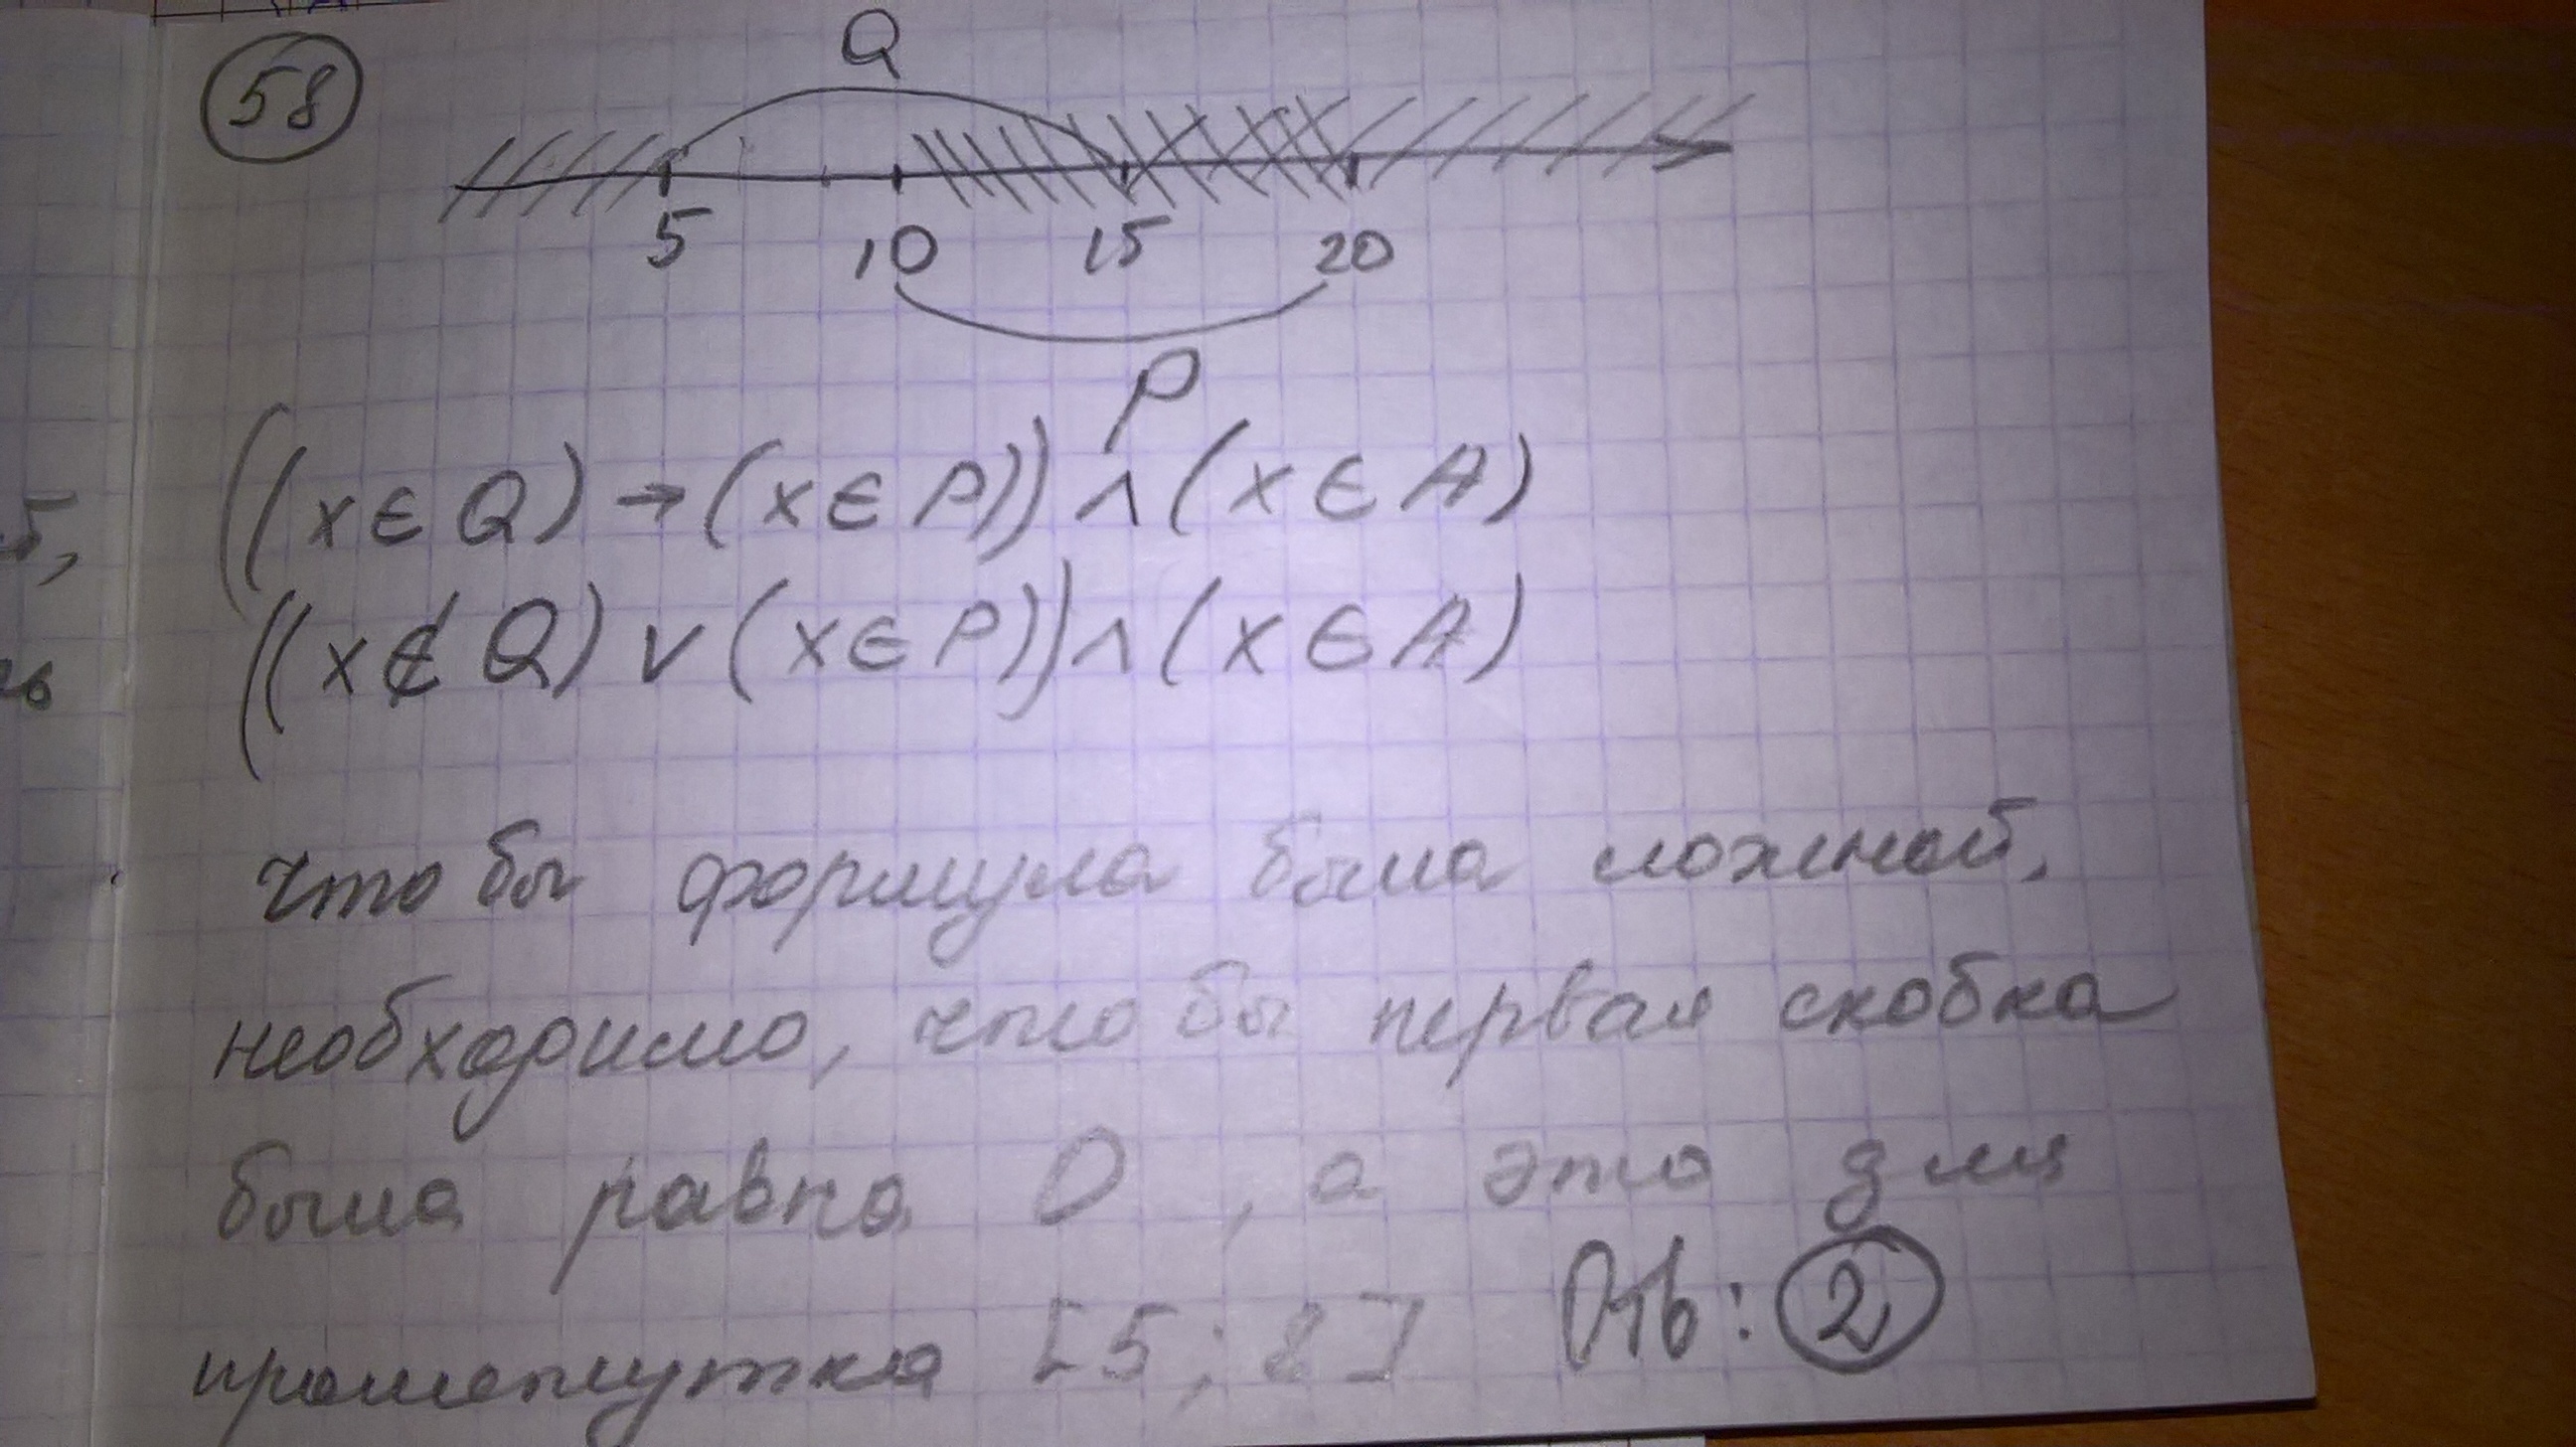 58
Q
5 10 15 20
P
((x∈Q)→(x∈P))∧(x∈A)
((x∉Q)∨(x∈P))∧(x∈A)
что бы формула была ложной,
необходимо, что бы первая скобка
была равна 0, а это для
промежутка [5; 8]
Отв: 2
б,